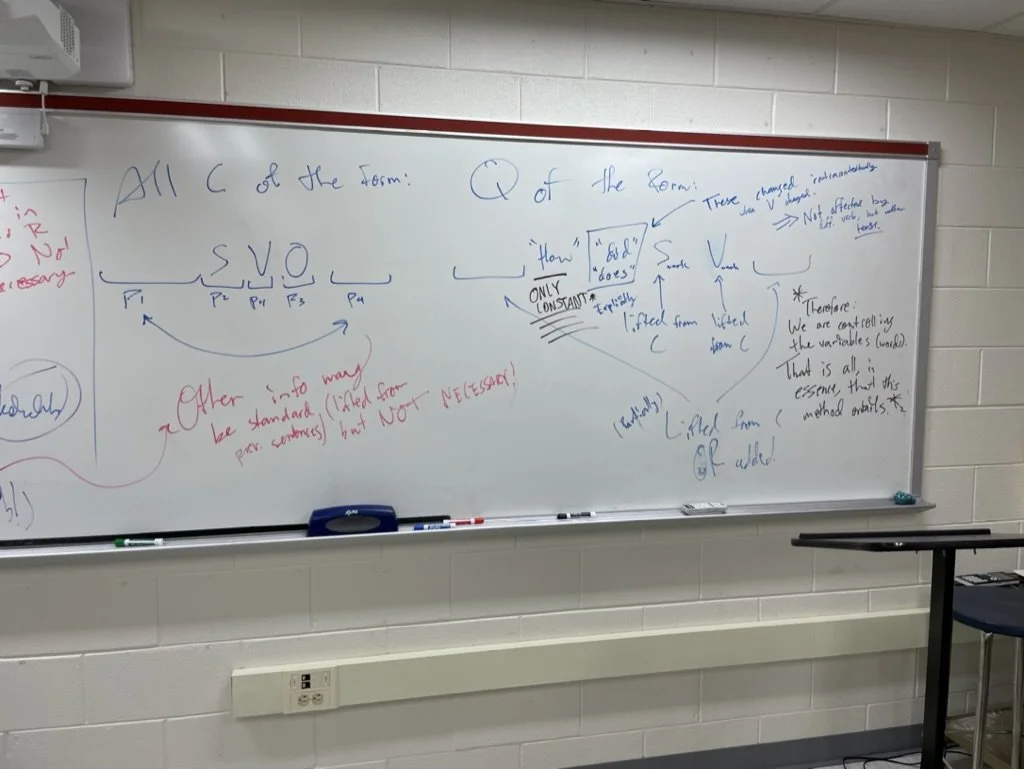 in
R
No!
necessary
All C of the form:
S V O
P1 P2 P4 P3 P4
Other info may
be standard, (lifted from
prev. sentences) but NOT NECESSARY!
Q of the form:
"How" "did" "does" S V
ONLY
CONSTANT*
Explicitly
lifted from
C
lifted
from C
These changed
when V changed.
=> Not affected by
diff. verb, but rather
tense.
*Therefore:
We are controlling
the variables (words).
That is all, in
essence, that this
method entails.*
(Partially)
Lifted from C
OR added.